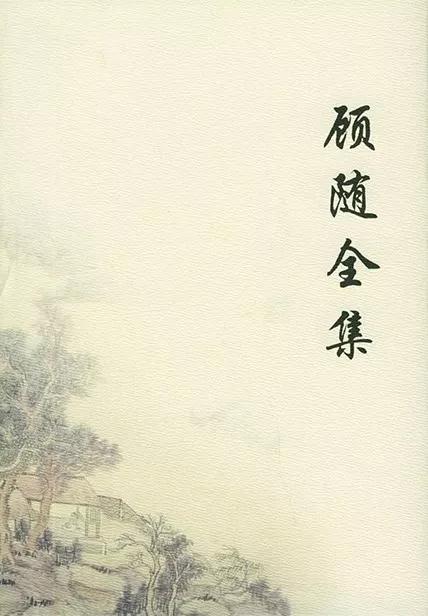 顾随全集